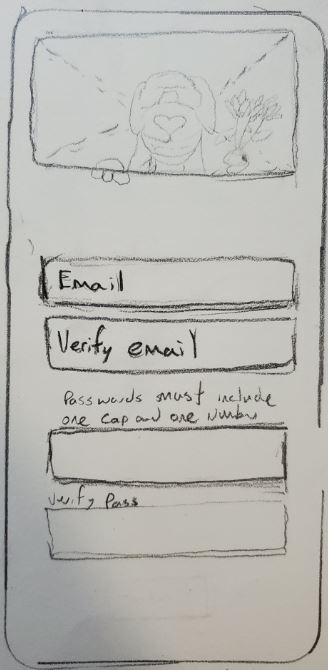 Email
Verify email
Passwords must include
one Cap and one Number
Verify Pass